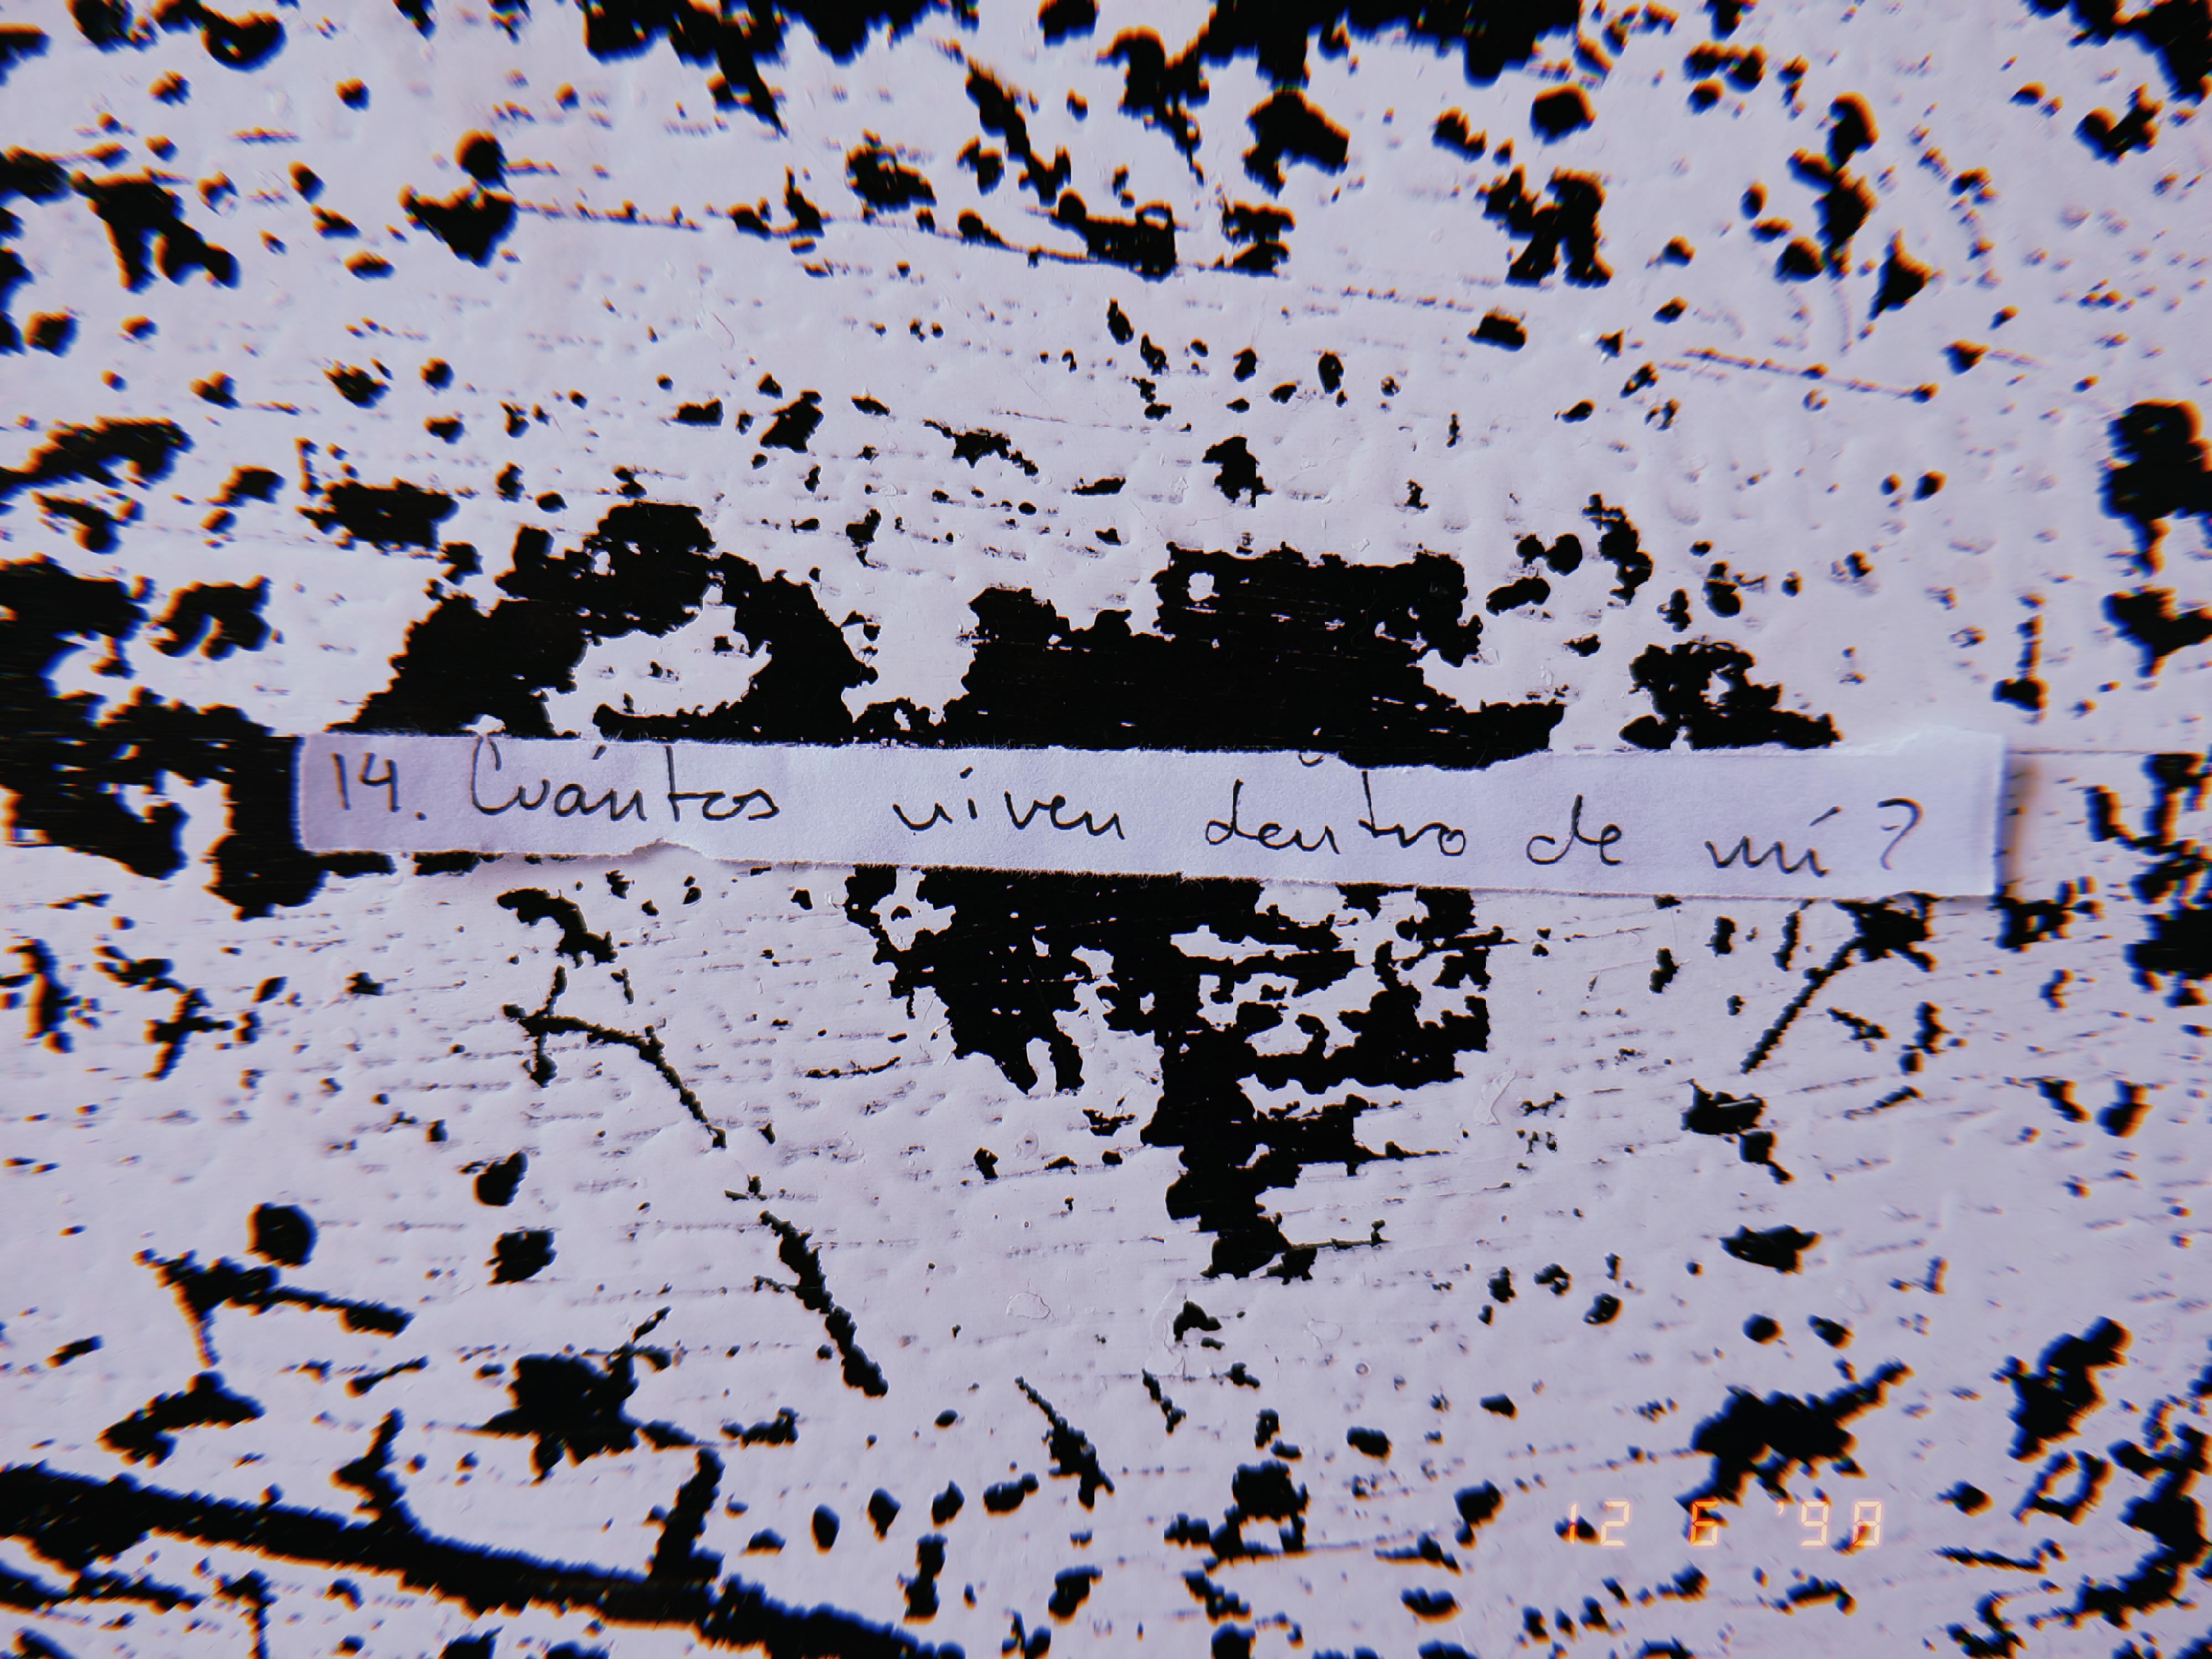 14. Cuántos viven dentro de mí?
12 6 '98